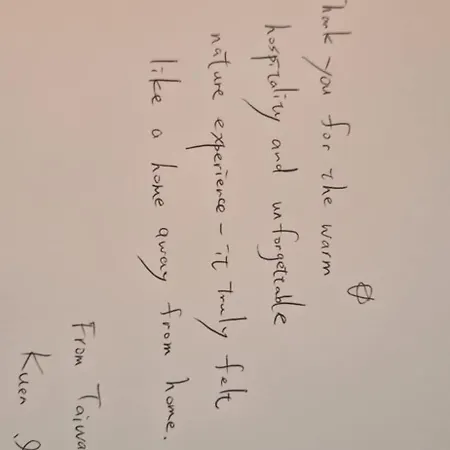 Thank you for the warm
hospitality and unforgettable
nature experience - it truly felt
like a home away from home.
From Taiwa
Kuen